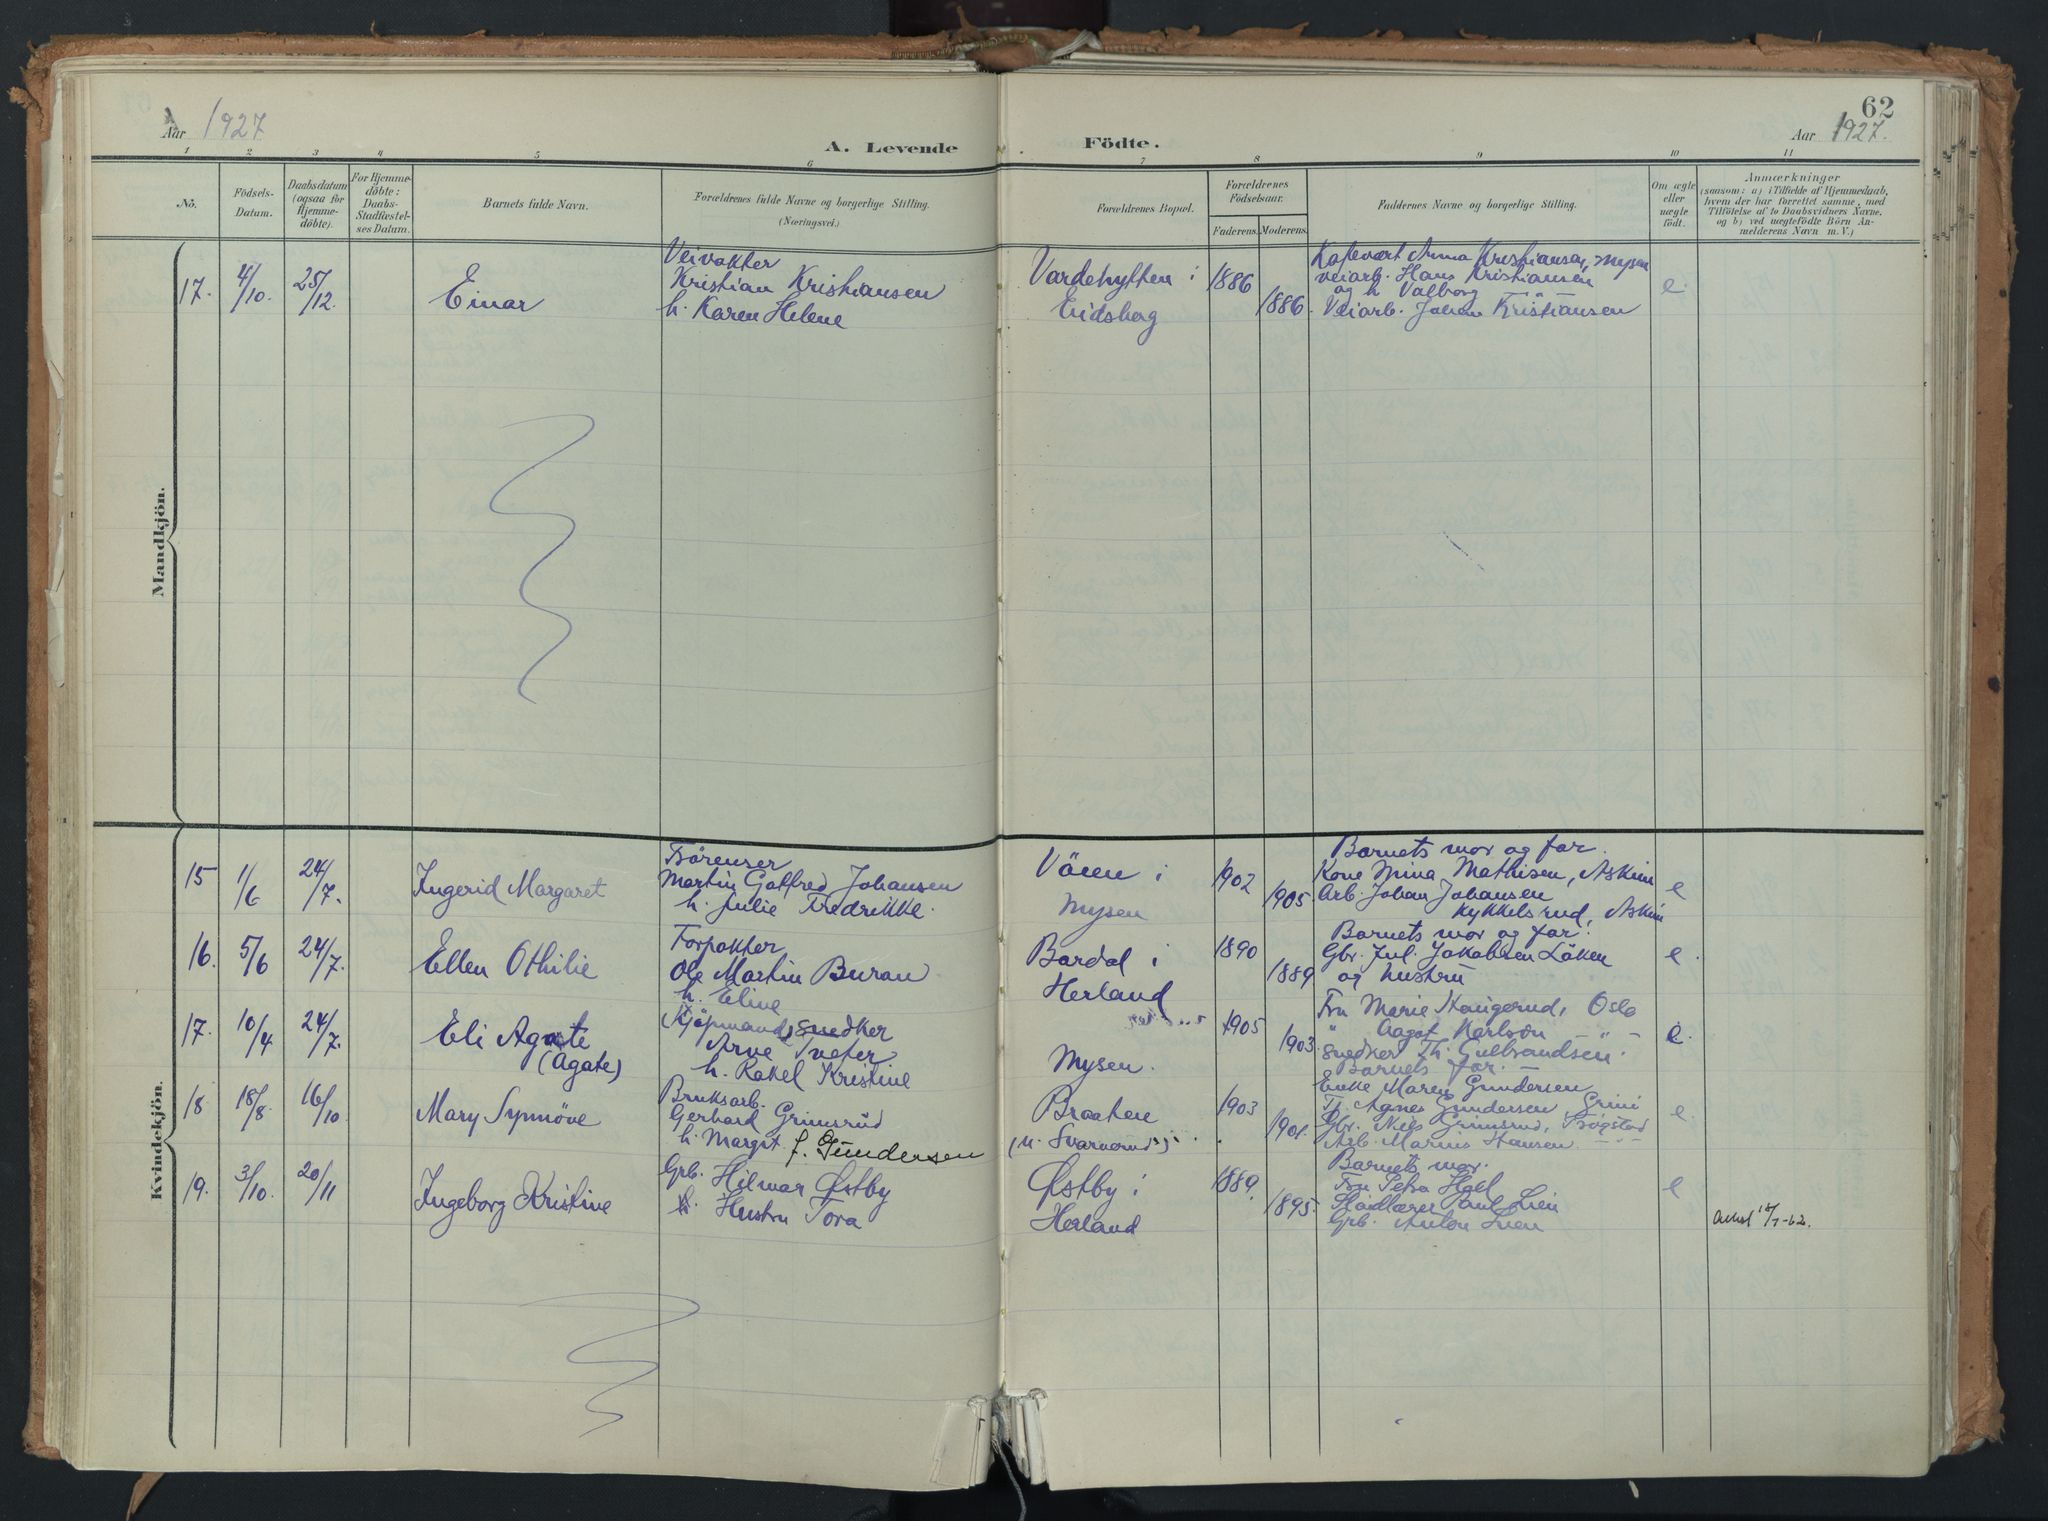 62
Aar 1927
A. Levende Födte.
Aar 1927.
1 2 3 4 5 6 7 8 9 10 11
No.
Födsels-Datum.
Daabsdatum (ogsaa for Hjemme-döbte).
For Hjemme-döbte: Daabs-Stadfæstel-ses Datum.
Barnets fulde Navn.
Forældrenes fulde Navne og borgerlige Stilling.
(Næringsvei.)
Forældrenes Bopæl.
Forældrenes Födselsaar.
Faderens. Moderens.
Faddernes Navne og borgerlige Stilling.
Om ægte eller uægte födt.
Anmærkninger
(saasom: a) i Tilfælde af Hjemmedaab,
hvem der har forrettet samme, med
Tilföielse af to Daabsvidners Navne,
og b) ved uægtefödte Börn An-
melderens Navn m. V.)
Mandkjön.
17. 4/10. 25/12. Einar
Veivokter
Kristian Kristiansen
h. Karen Helene
Vardehytten i
Eidsberg
1886
1886.
Anna Kristiansen, Mysen
veiarb. Hans Kristiansen
og h Valborg
Veiarb. Johan Kristiansen
e.
Kvindekjön.
15 1/6 24/7. Ingerid Margaret
Martin Gotfred Johansen
h. Julie Fredrikke.
i
Mysen
1902
1905
Barnets mor og far.
Kone Mina Mathisen, Askim
Arb. Johan Johansen
Kykkelsrud, Askim
e
16. 5/6 24/7. Ellen Othilie
Forpakter
Ole Martin Buran
h. Eline
Bardal i
Herland
1890
1889
Barnets mor og far.
Gbr. Jul. Jakobsen Löken
og hustru
e.
17. 10/4 24/7. Eli Agate
(Agate)
Kjöpmand, snedker
Arne Tveter
h. Rakel Kristine
Mysen.
1905
1903.
Fru Marie Haugerud, Oslo
" Aagot Karlson - " -
snedker Th. Gulbrandsen
Barnets far.
e.
18. 18/8. 16/10 Mary Synnöve
Bruksarb.
Gerhard Grimsrud
h. Margit f. Gundersen
Braaten
1903
1901.
Enke Maren Gundersen
Agnes Gundersen Grini
Gbr. Nils Grimsrud, Trögstad
Arb. Marius Hansen - " -
e.
19. 3/10. 20/11 Ingeborg Kristine
Grb. Hilmar Østby
Hustru Tora
Østby i
Herland
1889.
1895.
Barnets mor.
Fru Petra Hoel
Paul Lien
Grb. Anton Lien
e